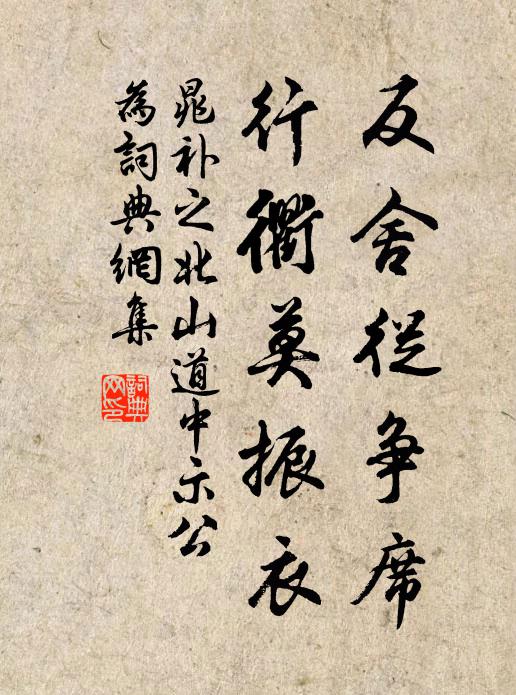 反舍從争席
行衢莫振衣
晁补之北山道中示公
為詞典網集
詞典
网印